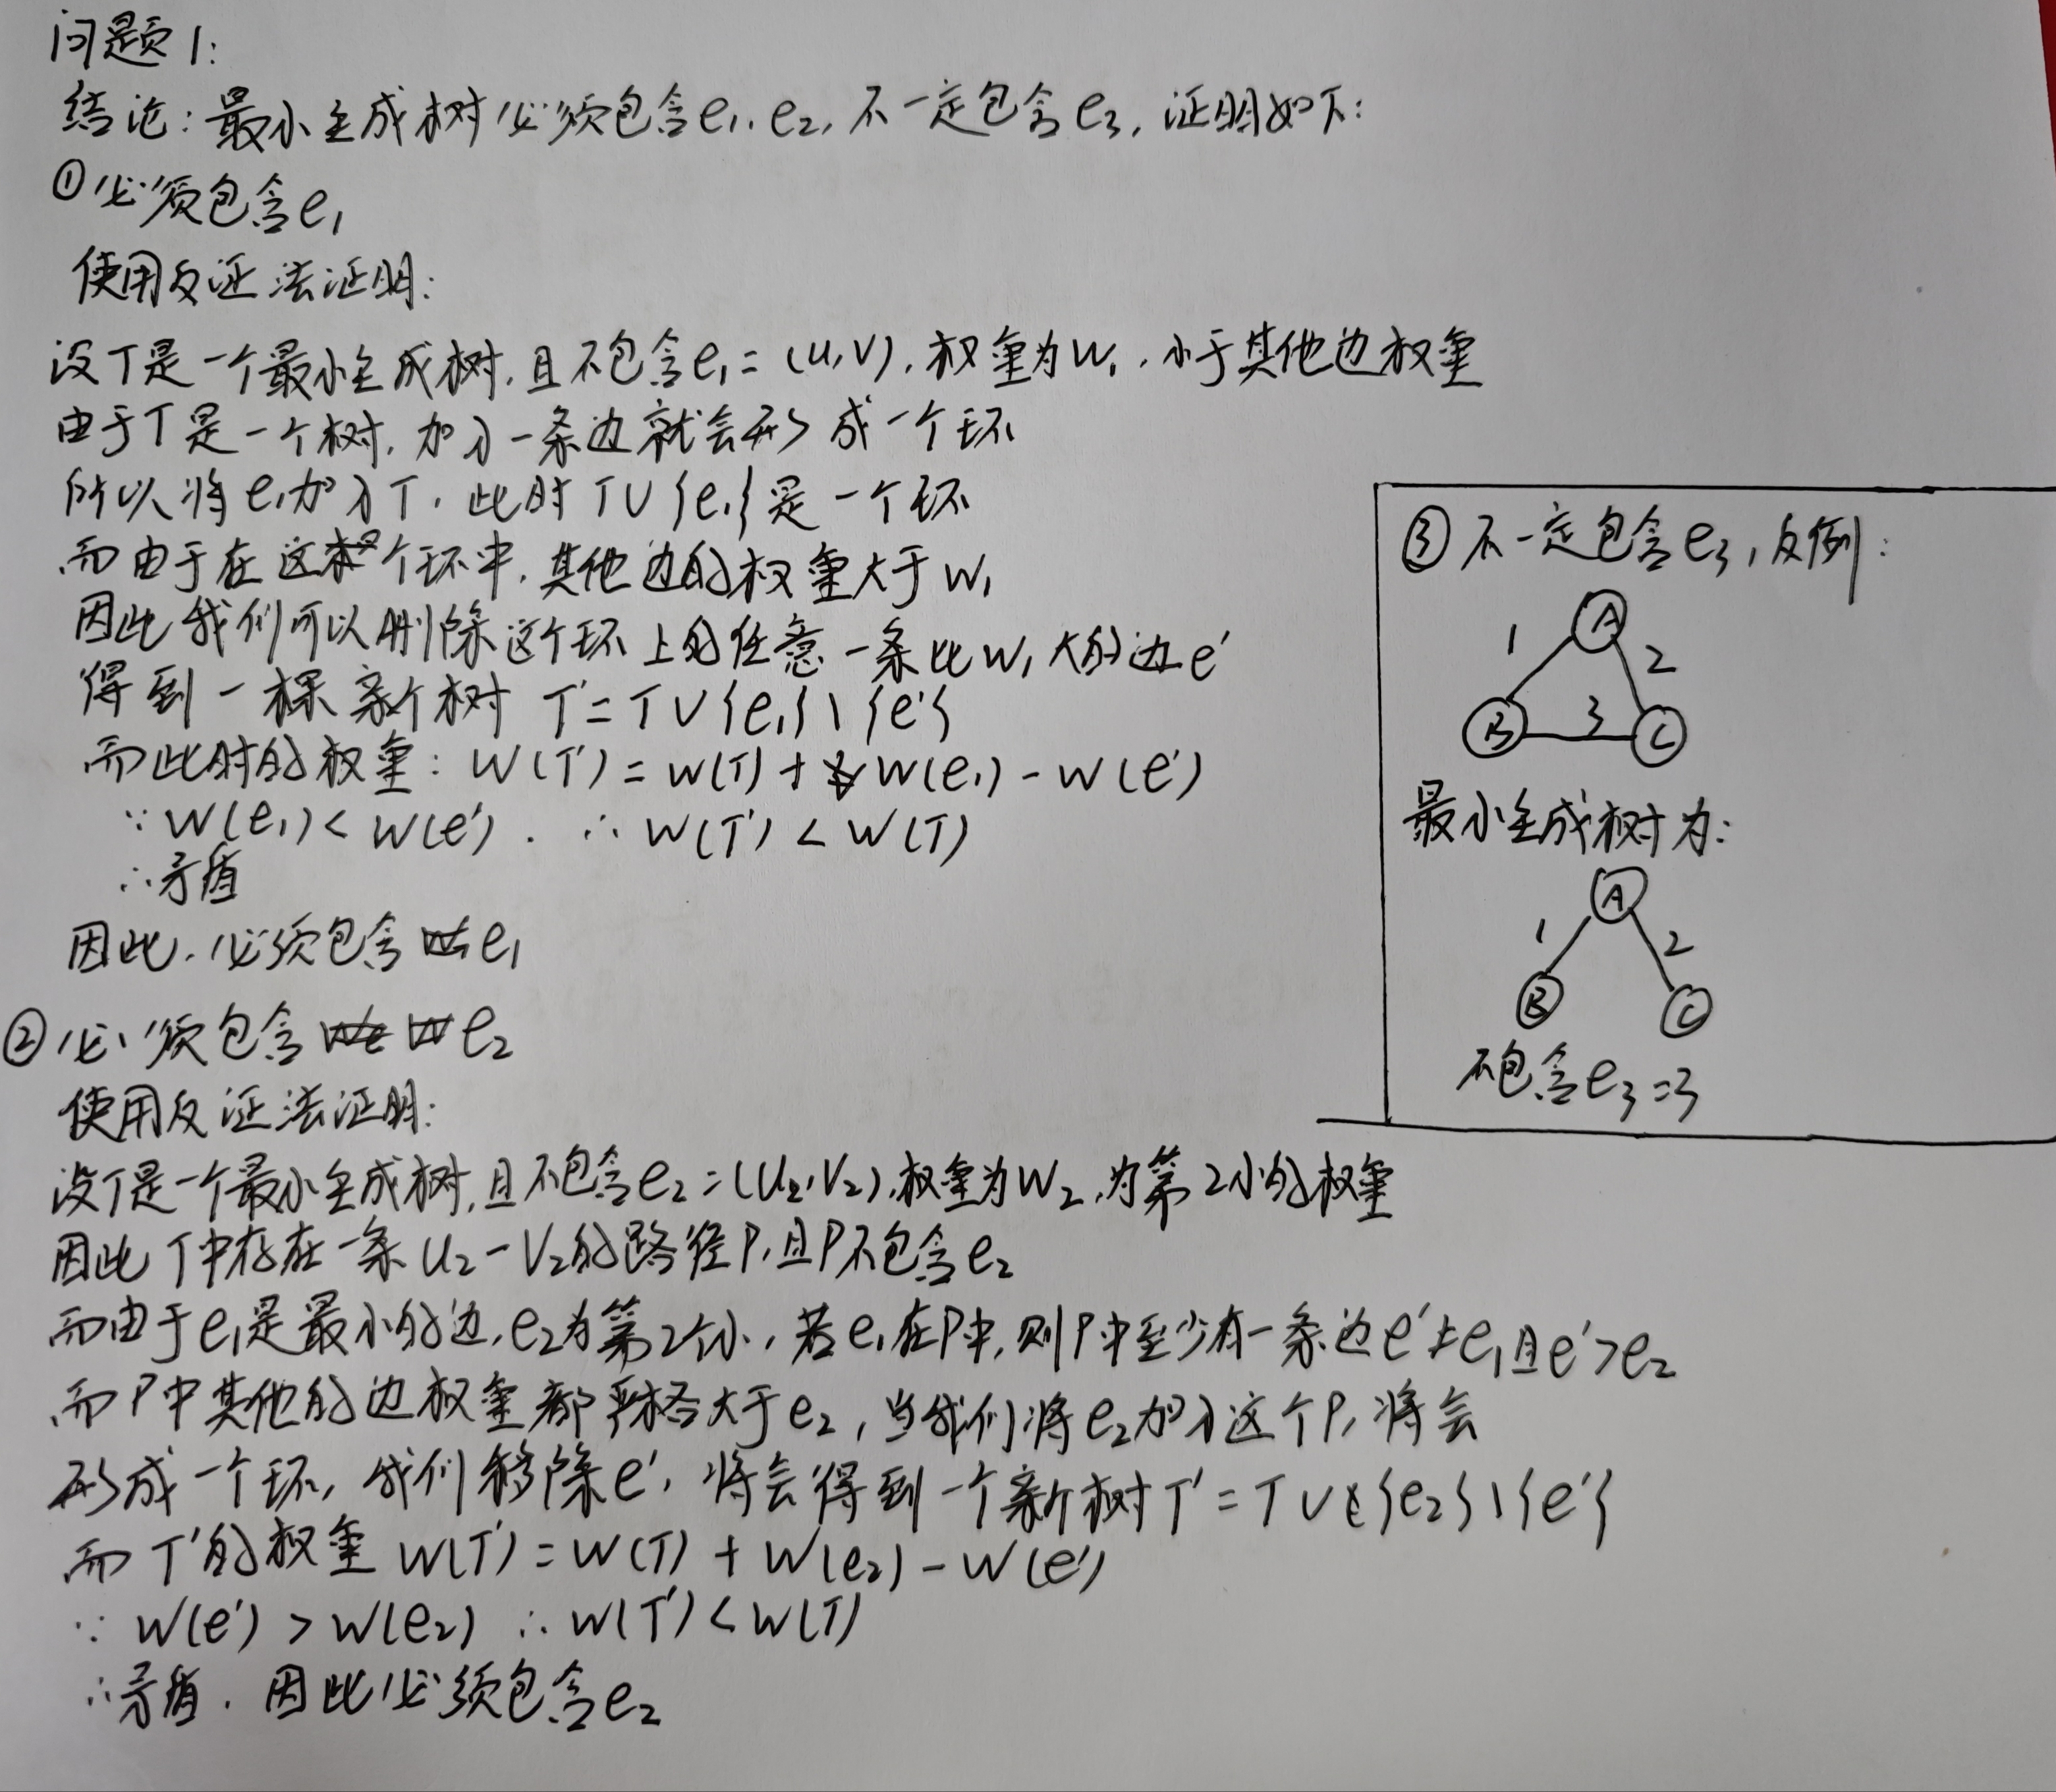 问题1:
结论:最小生成树必须包含e₁,e₂,不一定包含e₃,证明如下:
①必须包含e₁
使用反证法证明:
设T是一个最小生成树,且不包含e₁=(u,v),权重为w₁,小于其他边权重
由于T是一个树,加入一条边就会形成一个环
所以将e₁加入T,此时T∪{e₁}是一个环
而由于在这个环中,其他边的权重大于w₁
因此我们可以删除这个环上的任意一条比w₁大的边e'
得到一棵新树 T'=T∪{e₁}\{e'}
而此时的权重:W(T')=W(T)+W(e₁)-W(e')
∵W(e₁)<W(e'). ∴W(T')<W(T)
∴矛盾
因此,必须包含e₁
②必须包含e₂
使用反证法证明:
设T是一个最小生成树,且不包含e₂=(u₂,v₂),权重为W₂,为第2小的权重
因此T中存在一条u₂-v₂的路径P,且P不包含e₂
而由于e₁是最小的边,e₂为第2个小,若e₁在P中,则P中至少有一条边e'≠e₁且e'>e₂
而P中其他的边权重都严格大于e₂,当我们将e₂加入这个P,将会
形成一个环,我们移除e',将会得到一个新树T'=T∪{e₂}\{e'}
而T'的权重W(T')=W(T)+W(e₂)-W(e')
∵W(e')>W(e₂) ∴W(T')<W(T)
∴矛盾.因此必须包含e₂
③不一定包含e₃,反例:
A
1 2
B 3 C
最小生成树为:
A
1 2
B C
不包含e₃=3